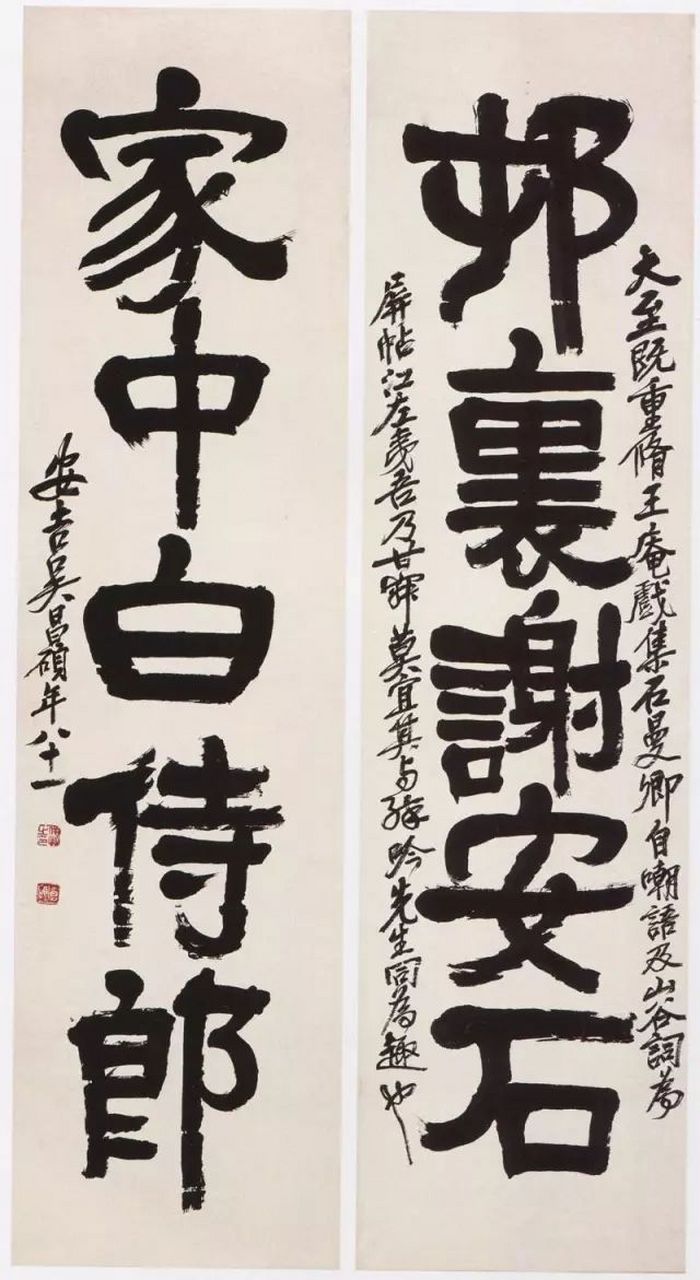 邨裏謝安石
至既重脩王庵戲集石曼卿自嘲語及山谷詞為
屏帖江左夷吾乃甘莫宜其与吟先生同為趣也
家中白侍郎
安吉吴昌碩年八十一